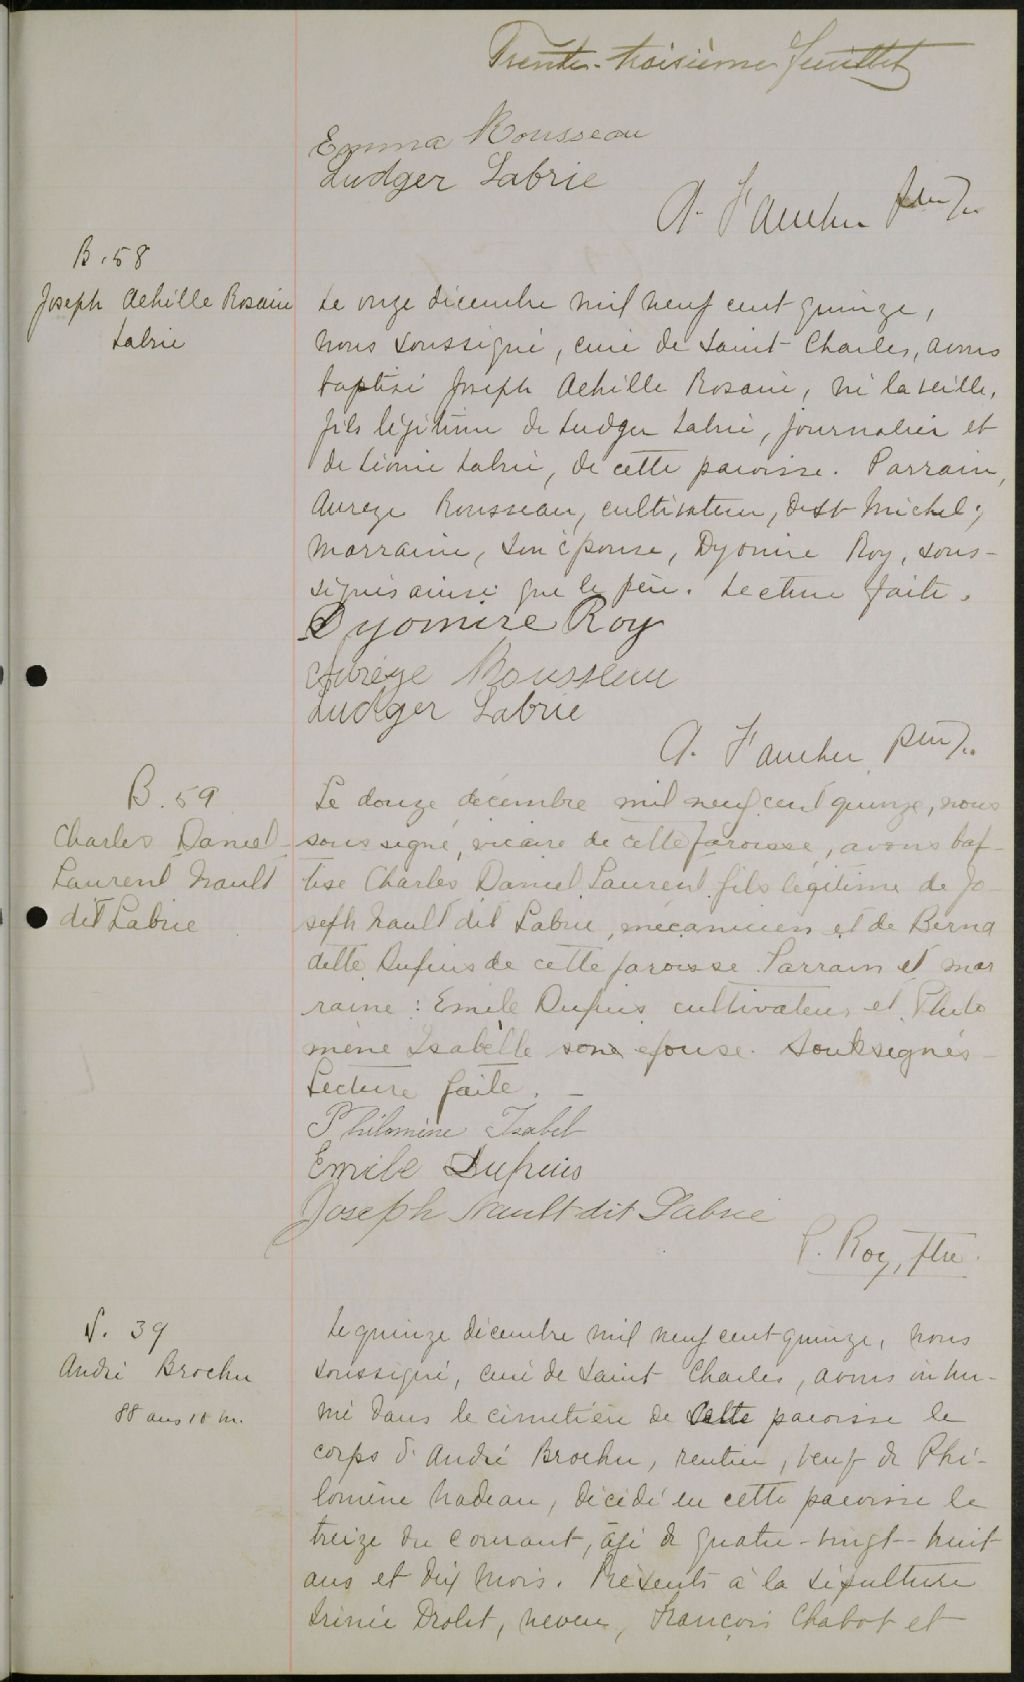 Trente-troisième feuillet
Emma Rousseau
Ludger Labrie
A. Faucher ptre
B. 58
Joseph Achille Rosaire
Labrie
Le onze décembre mil neuf cent quinze,
nous soussigné, curé de Saint-Charles, avons
baptisé Joseph Achille Rosaire, né la veille,
fils légitime de Ludger Labrie, journalier et
de Léonie Labrie, de cette paroisse. Parrain,
Aurège Rousseau, cultivateur, de St Michel;
marraine, son épouse, Dyomire Roy, sous-
signés ainsi que le père. Lecture faite.
Dyomire Roy
Aurège Rousseau
Ludger Labrie
A. Faucher ptre
B. 59
Charles Daniel
Laurent Nault
dit Labrie
Le douze décembre mil neuf cent quinze, nous
soussigné, vicaire de cette paroisse, avons bap-
tisé Charles Daniel Laurent fils légitime de Jo-
seph Nault dit Labrie, mécanicien et de Berna
dette Dupuis de cette paroisse. Parrain et mar
raine : Emile Dupuis cultivateur et Philo
mène Isabelle son épouse. Soussignés
Lecture faite.
Philomène Isabel
Emile Dupuis
Joseph Nault dit Labrie
P. Roy, ptre
S. 39
André Brochu
88 ans 10 m.
Le quinze décembre mil neuf cent quinze, nous
soussigné, curé de Saint Charles, avons inhu-
mé dans le cimetière de cette paroisse le
corps d'André Brochu, rentier, veuf de Phi-
lomène Nadeau, décédé en cette paroisse le
treize du courant, âgé de quatre-vingt-huit
ans et dix mois. Présents à la sépulture
Irénée Drolet, neveu, François Chabot et